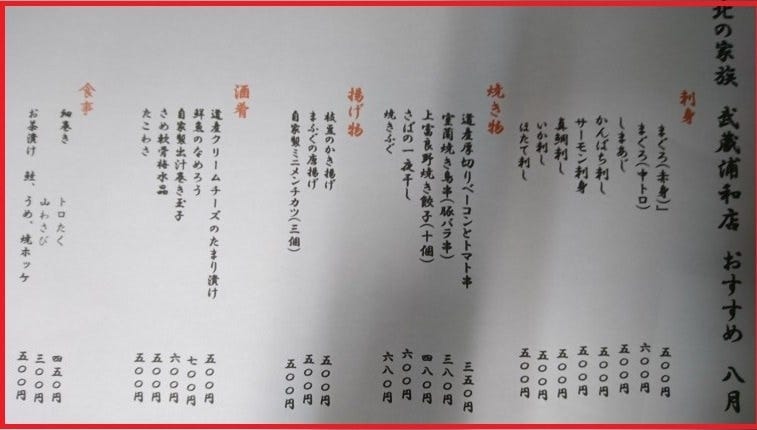 北の家族 武蔵浦和店 おすすめ 八月
刺身
まぐろ(赤身)」 五〇〇円
まぐろ(中トロ) 六〇〇円
しまあじ 五〇〇円
かんぱち刺し 五〇〇円
サーモン刺身 五〇〇円
真鯛刺し 五〇〇円
いか刺し 五〇〇円
ほたて刺し 五〇〇円
焼き物
道産厚切りベーコンとトマト串 三五〇円
室蘭焼き鳥串(豚バラ串) 三八〇円
上富良野焼き餃子(十個) 四八〇円
さばの一夜干し 六〇〇円
焼きふぐ 六八〇円
揚げ物
枝豆のかき揚げ 五〇〇円
まふぐの唐揚げ 五〇〇円
自家製ミニメンチカツ(三個) 五〇〇円
酒肴
道産クリームチーズのたまり漬け 五〇〇円
鮮魚のなめろう 七〇〇円
自家製出汁巻き玉子 六〇〇円
さめ軟骨梅水晶 五〇〇円
たこわさ 五〇〇円
食事
細巻き トロたく 四五〇円
山わさび 三〇〇円
お茶漬け 鮭、うめ、焼ホッケ 五〇〇円